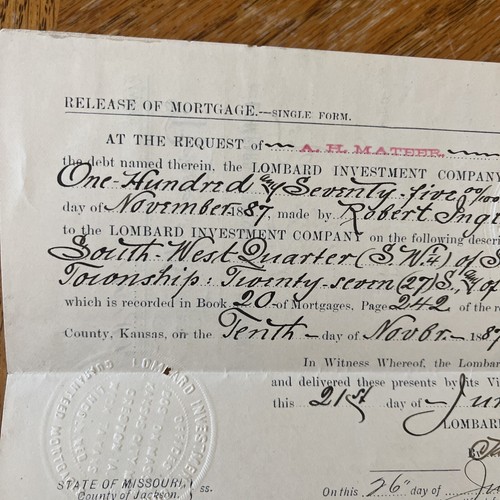 RELEASE OF MORTGAGE.—SINGLE FORM.
AT THE REQUEST of A. H. MATEER.
the debt named therein, the LOMBARD INVESTMENT COMPANY
One Hundred & Seventy-five 00/100
day of November 1887, made by Robert
to the LOMBARD INVESTMENT COMPANY on the following
South-West Quarter (S.W.4) of
Township: Twenty-seven (27) S., of
which is recorded in Book 20 of Mortgages, Page 242 of the
County, Kansas, on the Tenth day of Novbr 1887
In Witness Whereof, the Lombard
and delivered these presents by its
this 21st day of
LOMBARD
LOMBARD
GUARANTEED
STATE OF MISSOURI, ss.
County of Jackson.
On this 26" day of